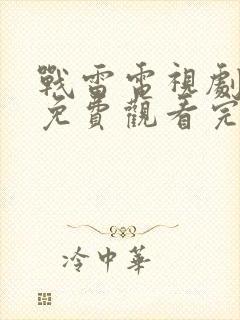 戰雷電視劇
免費觀看完
冷中華